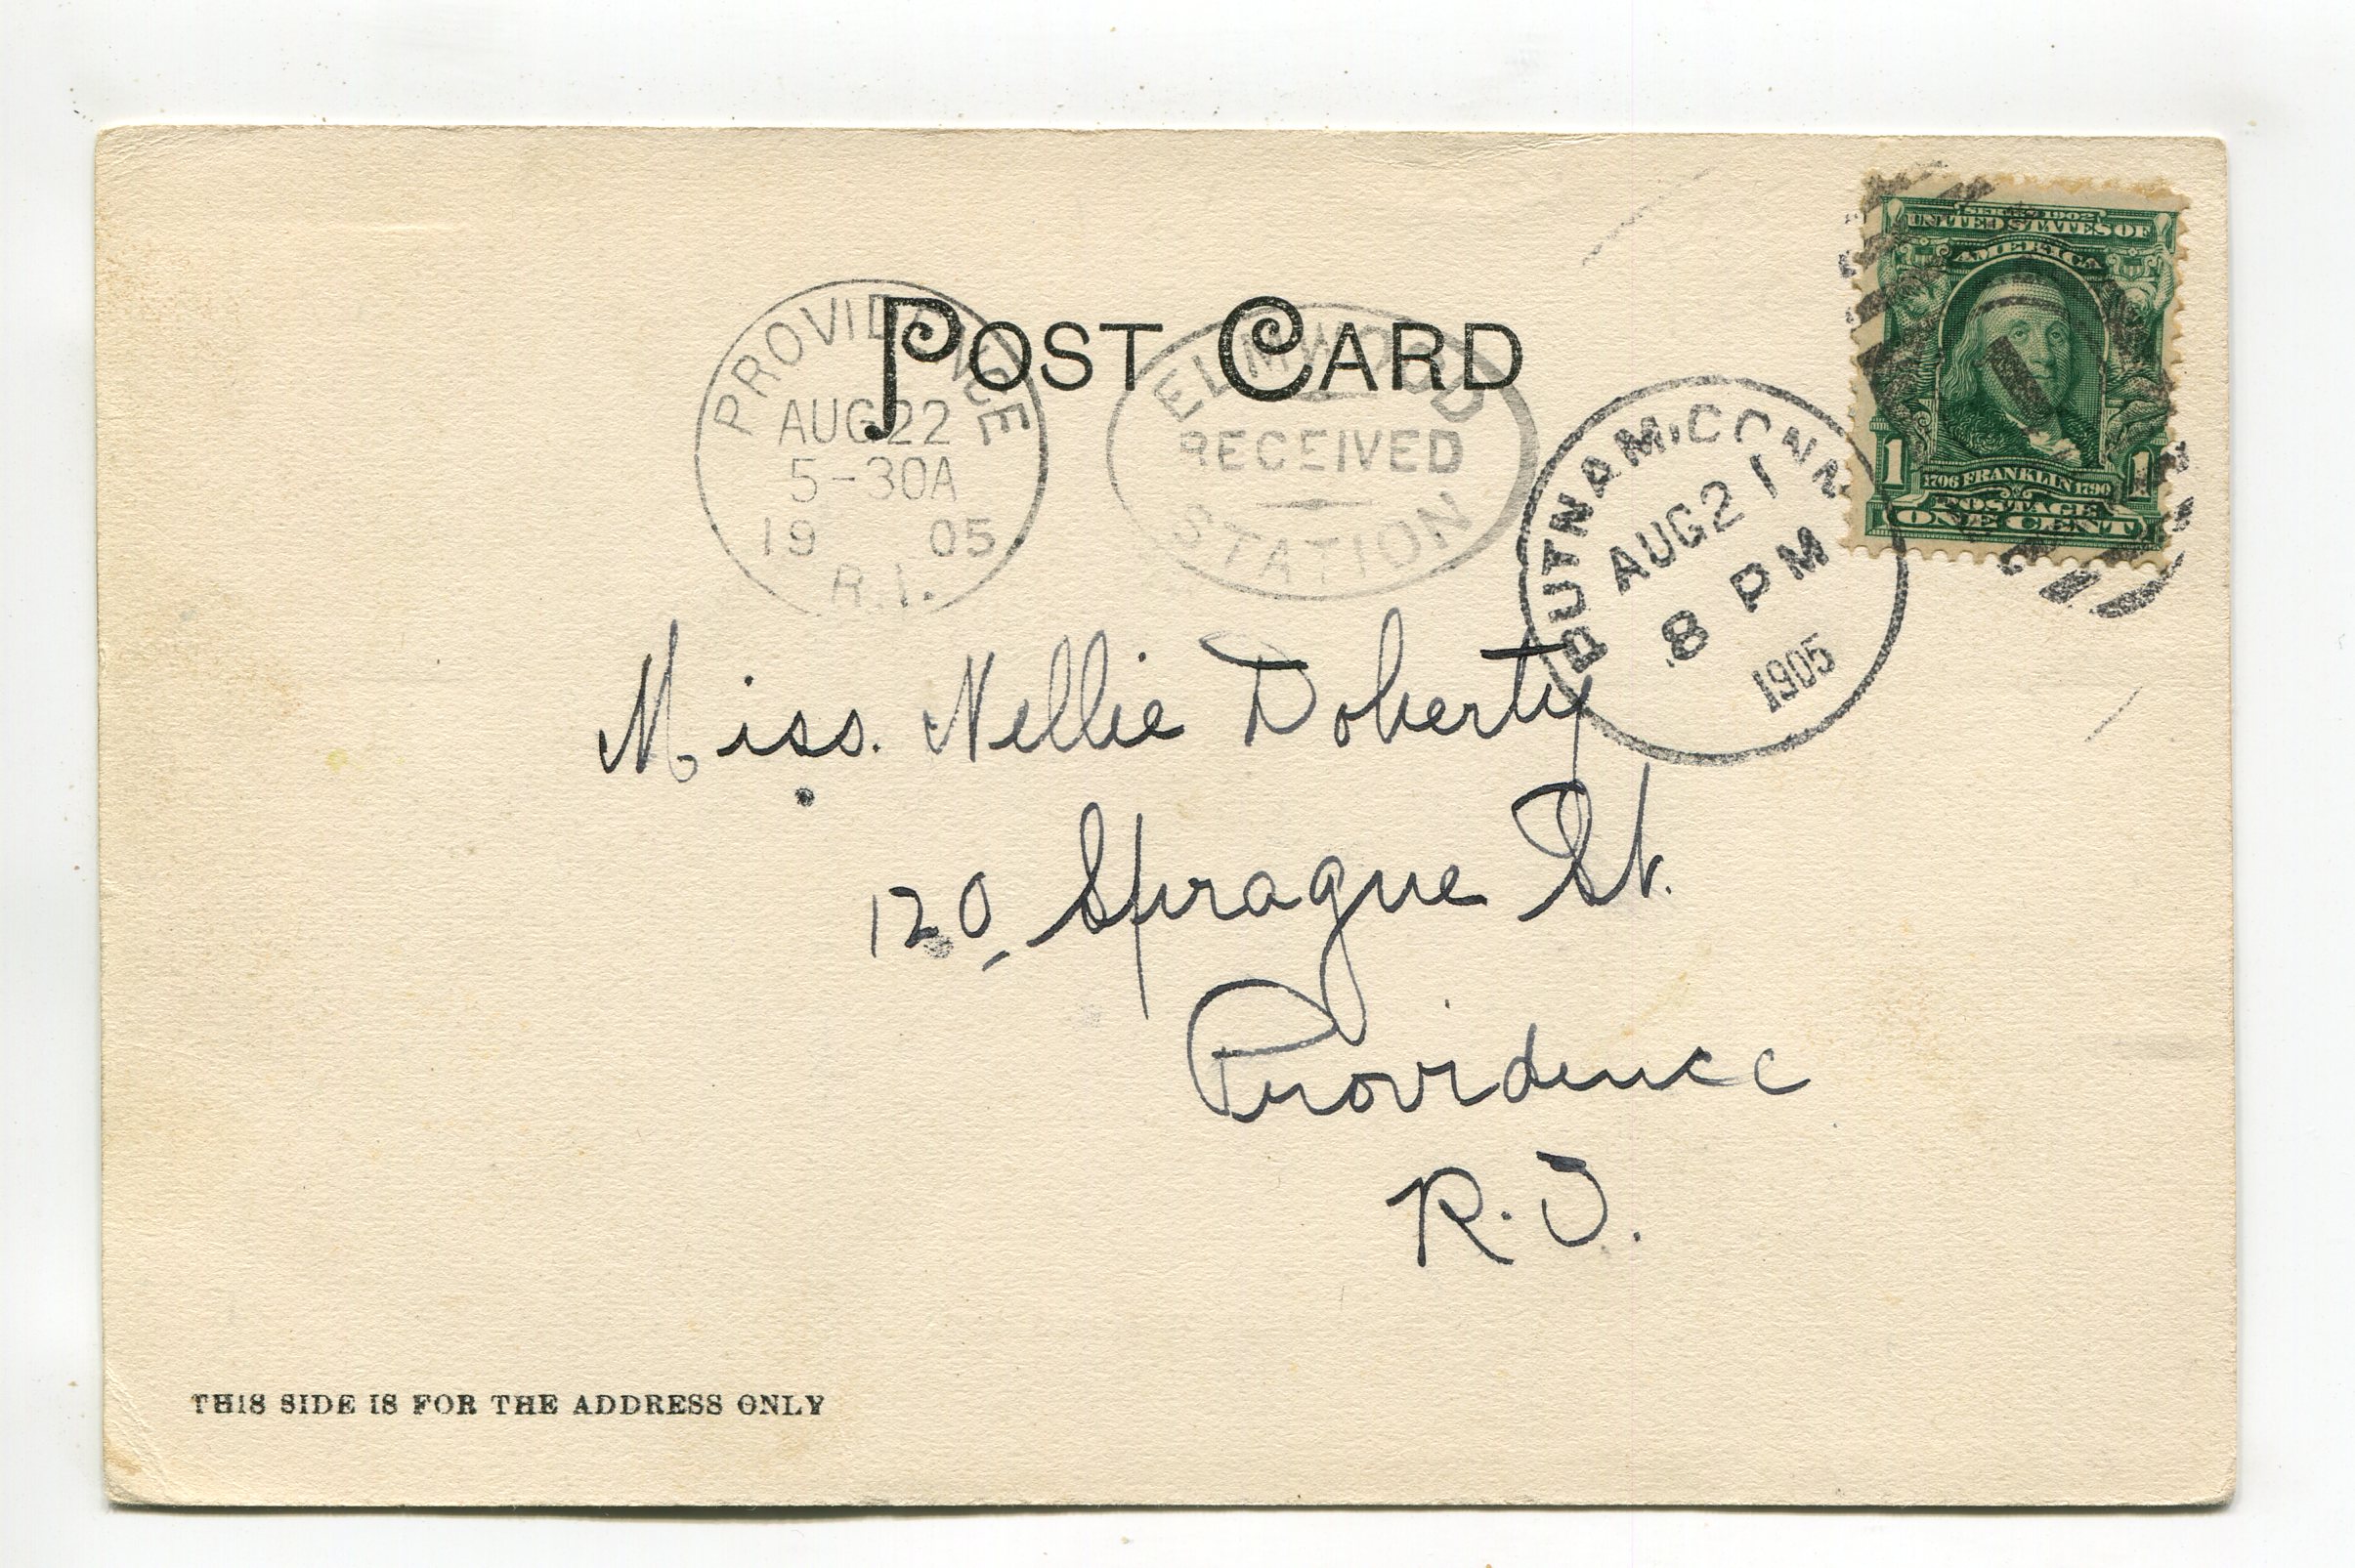 POST CARD
PROVIDENCE
AUG 22
5-30A
19 05
R.I.
ELMWOOD
RECEIVED
STATION
PUTNAM, CONN.
AUG 21
8 PM
1905
SERIES 1902
UNITED STATES OF
AMERICA
1 1706 FRANKLIN 1790 1
POSTAGE
ONE CENT
Miss. Nellie Doherty
120 Sprague St.
Providence
R.I.
THIS SIDE IS FOR THE ADDRESS ONLY